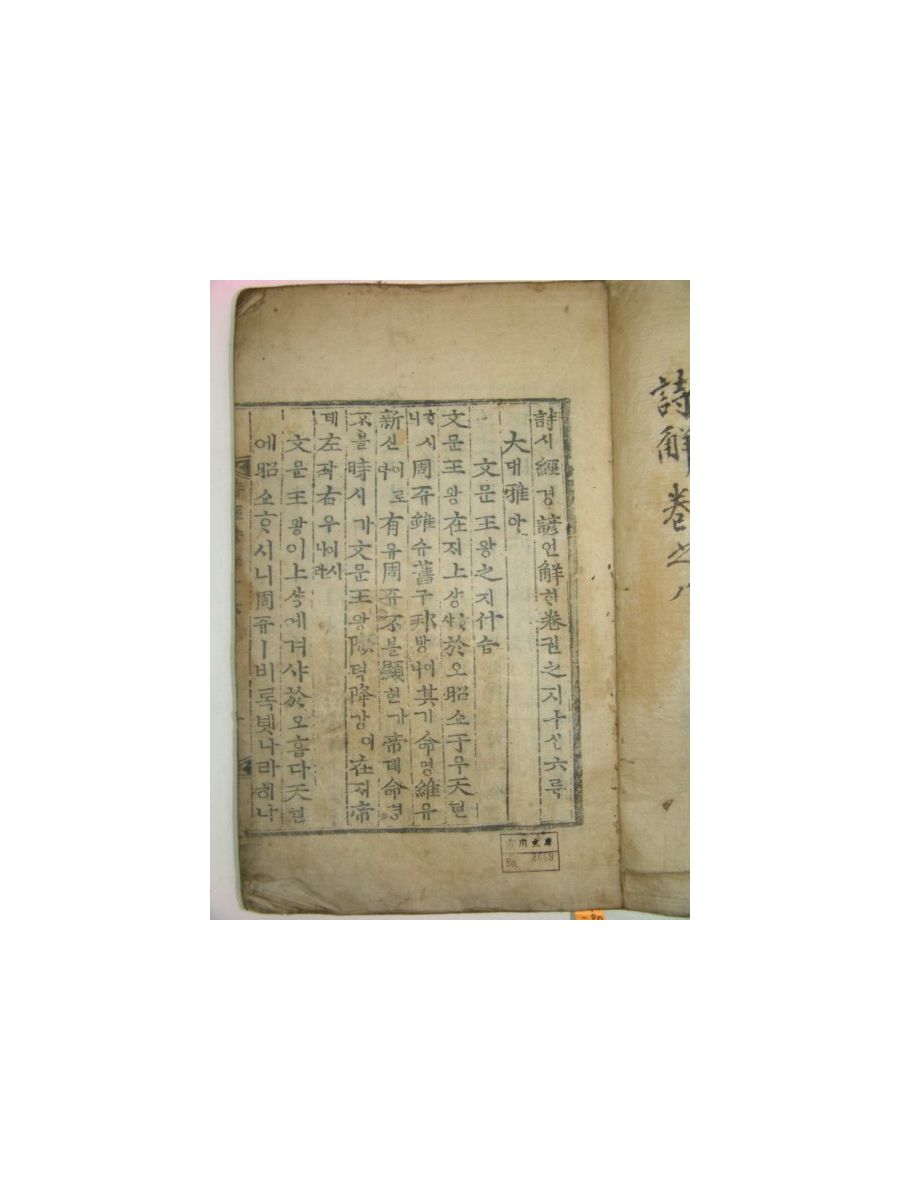 詩解卷之八
詩시經경諺언解ᄒᆡ卷권之지十십六륙
大대雅아
文문王왕之지什습
文문王왕在ᄌᆡ上샹ᄒᆞ샤於오昭쇼于우天텬
ᄒᆞ시니周쥬雖슈舊구邦방이나其기命명維유
新신이로다有유周쥬不블顯현가帝뎨命명
不블時시가文문王왕陟텩降강이在ᄌᆡ帝
뎨左좌右우ㅣ시니라
文문王왕이上샹에겨샤於오홉다天텬
에昭쇼ᄒᆞ시니周쥬ㅣ비록녯나라히나
文庫
No. 2669